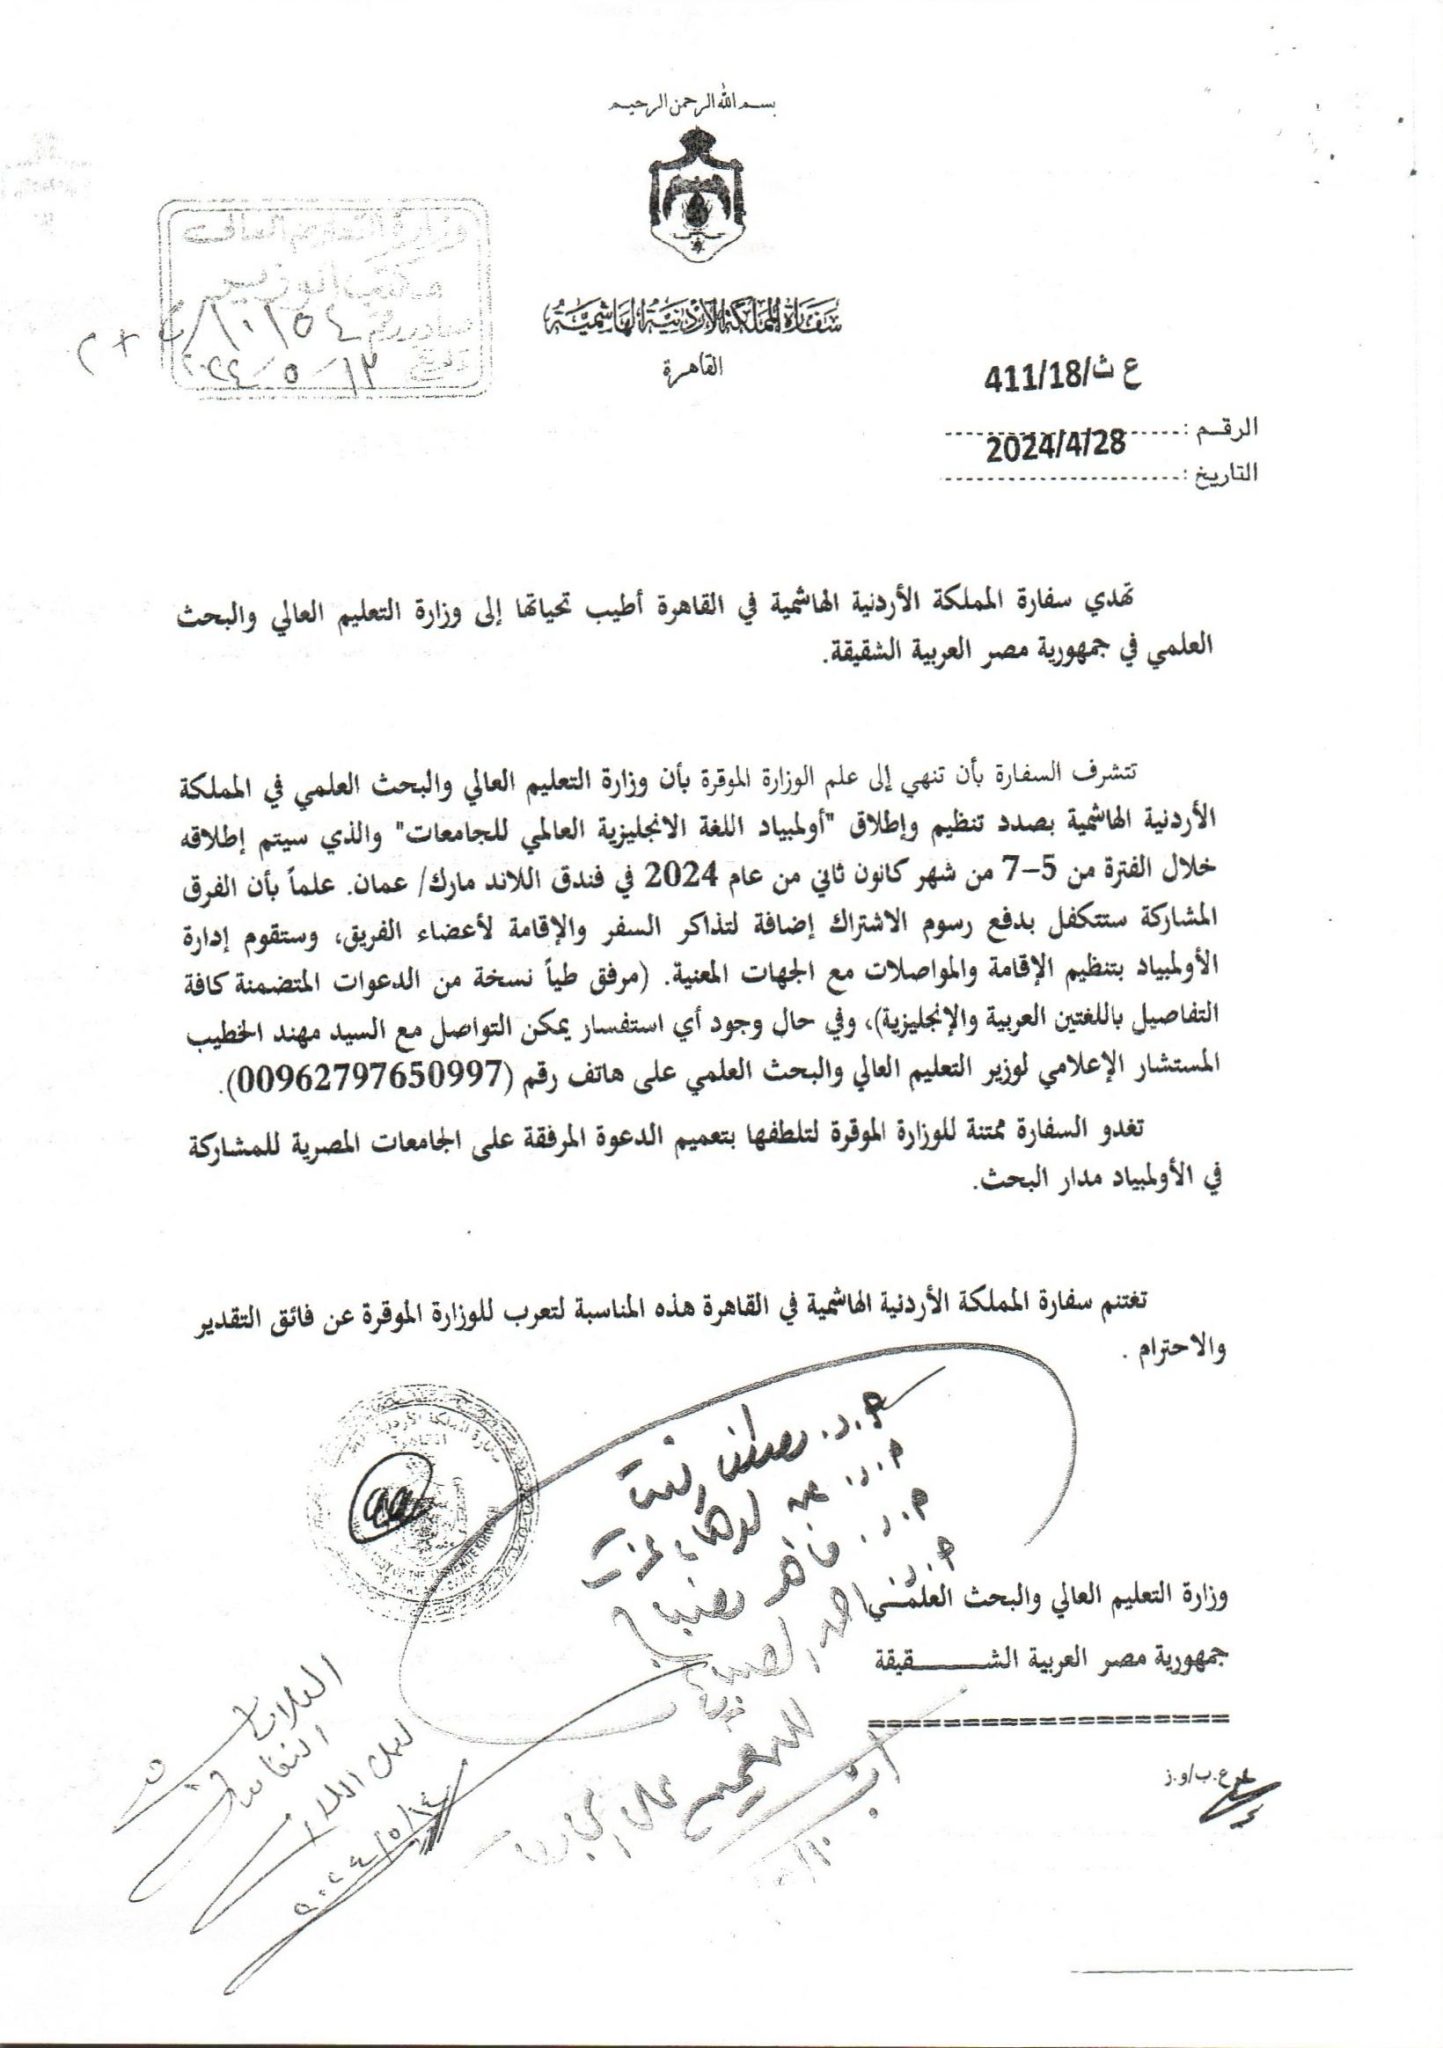 بسم الله الرحمن الرحيم
سفارة المملكة الأردنية الهاشمية
القاهرة
وزارة التعليم العالي
مكتب الوزير
صادر رقم ١٠١٥٤
٢٠٢٤/٥/١٢
ع ث/411/18
الرقم :
2024/4/28
التاريخ :
تهدي سفارة المملكة الأردنية الهاشمية في القاهرة أطيب تحياتها إلى وزارة التعليم العالي والبحث
العلمي في جمهورية مصر العربية الشقيقة.
تتشرف السفارة بأن تنهي إلى علم الوزارة الموقرة بأن وزارة التعليم العالي والبحث العلمي في المملكة
الأردنية الهاشمية بصدد تنظيم وإطلاق "أولمبياد اللغة الانجليزية العالمي للجامعات" والذي سيتم إطلاقه
خلال الفترة من 5–7 من شهر كانون ثاني من عام 2024 في فندق اللاند مارك/ عمان. علماً بأن الفرق
المشاركة ستتكفل بدفع رسوم الاشتراك إضافة لتذاكر السفر والإقامة لأعضاء الفريق، وستقوم إدارة
الأولمبياد بتنظيم الإقامة والمواصلات مع الجهات المعنية. (مرفق طياً نسخة من الدعوات المتضمنة كافة
التفاصيل باللغتين العربية والإنجليزية)، وفي حال وجود أي استفسار يمكن التواصل مع السيد مهند الخطيب
المستشار الإعلامي لوزير التعليم العالي والبحث العلمي على هاتف رقم (00962797650997).
تغدو السفارة ممتنة للوزارة الموقرة لتلطفها بتعميم الدعوة المرفقة على الجامعات المصرية للمشاركة
في الأولمبياد مدار البحث.
تغتنم سفارة المملكة الأردنية الهاشمية في القاهرة هذه المناسبة لتعرب للوزارة الموقرة عن فائق التقدير
والاحترام .
وزارة التعليم العالي والبحث العلمـي
جمهورية مصر العربية الشـــــقيقة
===================
ع.ب/و.ز
العلاقات
الثقافية
٢٠٢٤/٥/١٤